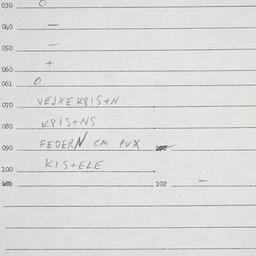 030 O
040 —
050 —
060 +
061 O
070 VEJXEK8IS+N
080 K8IS+NS
090 FEDERN CM PUX
100 KIS+ELE
101 102 —